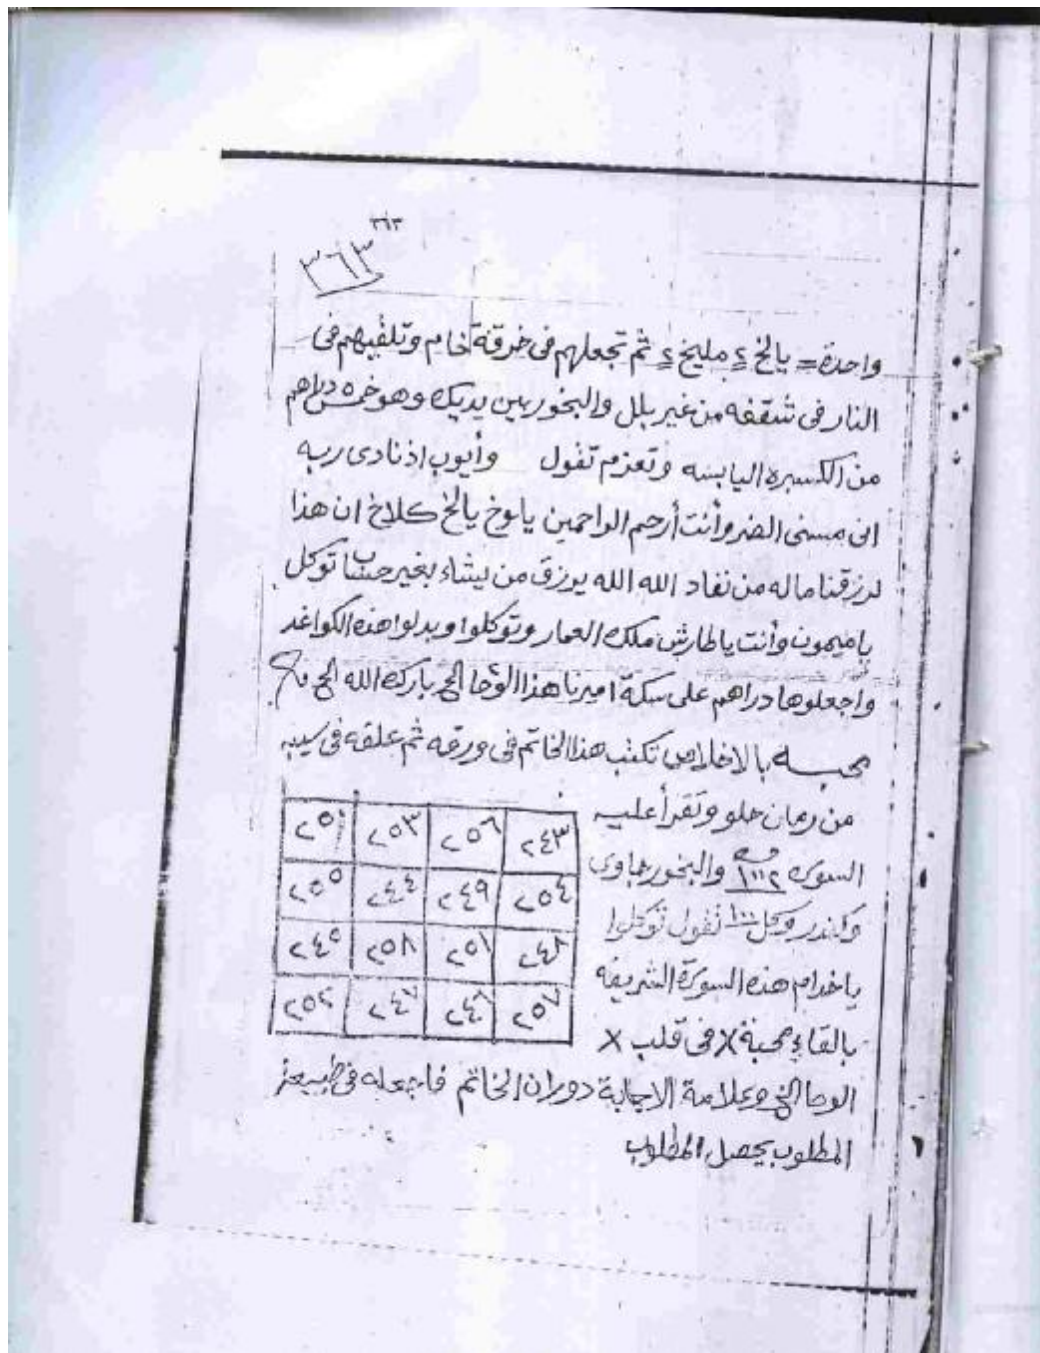 ٣٦٣
٣٦٣
واحدة = يالخ ٤ مليخ ٤ ثم تجعلهم في خرقة خام وتلقيهم في
النار في شقفه من غير بلل والبخور بين يديك وهو خمسه دراهم
من الكسبره اليابسه وتعزم تقول وأيوب اذ نادى ربه
انى مسنى الضر وأنت أرحم الراحمين يالوخ يالخ كلاخ ان هذا
لرزقنا ماله من نفاد الله الله يرزق من يشاء بغير حساب توكل
يا ميمون وأنت يا طارش ملك العمار وتوكلوا وبدلوا هذه الكواغد
واجعلوها دراهم على سكة اميرنا هذا الوحا الخ بارك الله الخ
محبــه بالاخلاص تكتب هذا الخاتم في ورقه ثم علقه في سيبه
من رمان حلو وتقرأ عليه
السوره ١٠٠٢ والبخور جاوى
وكندر وكل ١٠٠ تقول توكلوا
يا خدام هذه السورة الشريفه
بالقاء محبة X في قلب X
الوحا الخ وعلامة الاجابة دوران الخاتم فاجعله في طبيعة
المطلوب يحصل المطلوب
٢٤٣ ٢٥٦ ٢٥٣ ٢٥٠
٢٥٤ ٢٤٩ ٢٤٤ ٢٥٥
٢٤٨ ٢٥١ ٢٥٨ ٢٤٥
٢٥٧ ٢٤٦ ٢٤٧ ٢٥٢